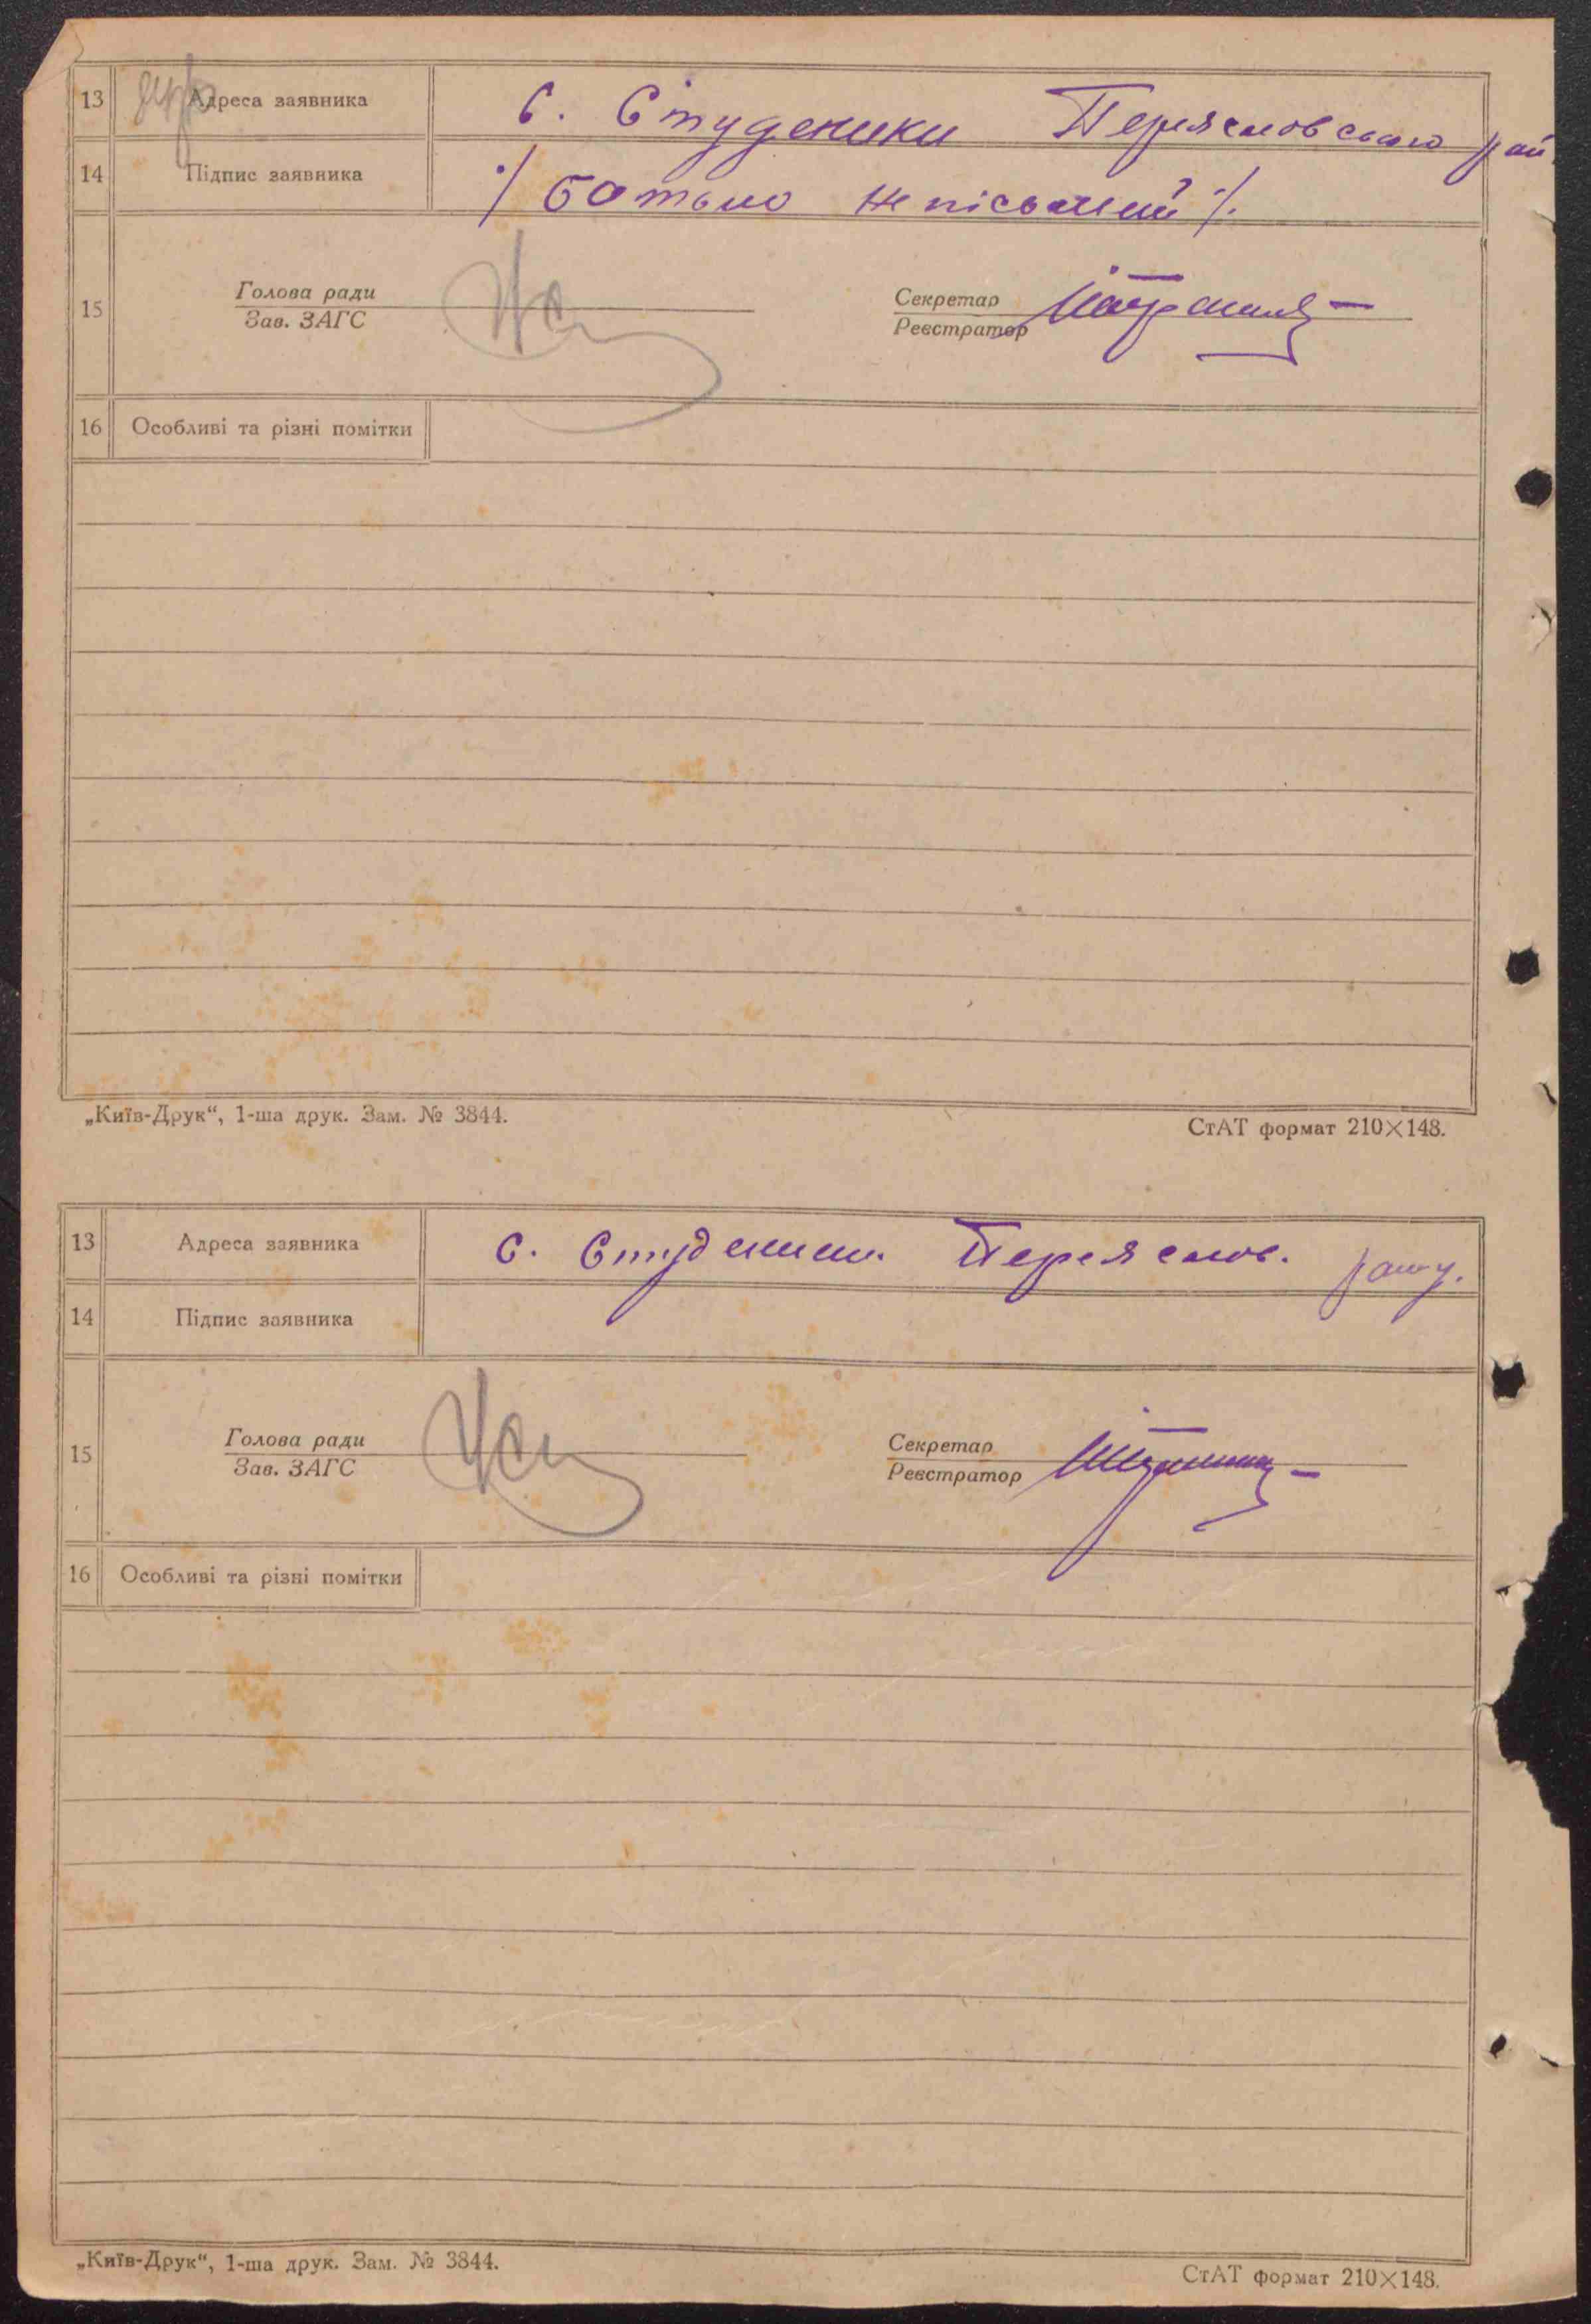 13 Адреса заявника С. Студеники Переяславського рай
14 Підпис заявника ·/ батько непісьмений ·/.
15 Голова ради Секретар
Зав. ЗАГС Реєстратор
16 Особливі та різні помітки
„Київ-Друк“, 1-ша друк. Зам. № 3844. СтАТ формат 210×148.
13 Адреса заявника С. Студеники Переяслов. району.
14 Підпис заявника
15 Голова ради Секретар
Зав. ЗАГС Реєстратор
16 Особливі та різні помітки
„Київ-Друк“, 1-ша друк. Зам. № 3844. СтАТ формат 210×148.